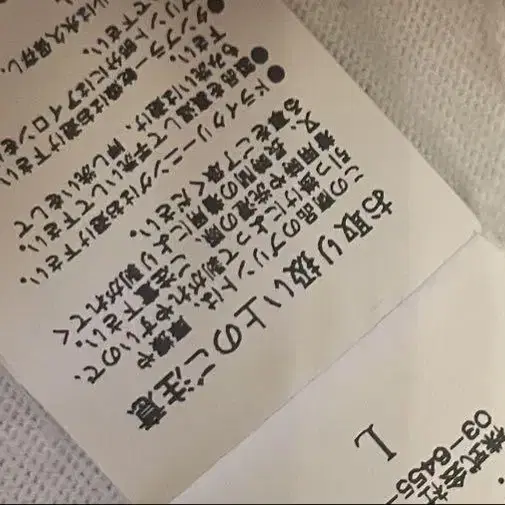 お取り扱い上のご注意
この商品のプリントは、摩擦や
引っ掛けによって剥がれやすいので、
着用時や洗濯の際、ご注意下さい。
又、長時間の着用により剥がれてく
る事をご了承ください。
●ドライクリーニングはお避け下さい。
●製品を裏返して手洗いして下さい。
もみ洗いは避け、押し洗いをして
下さい。
●タンブラー乾燥はお避け下さい
プリント部分にはアイロンを
は永久保存し
株式会社
03-6455-
L